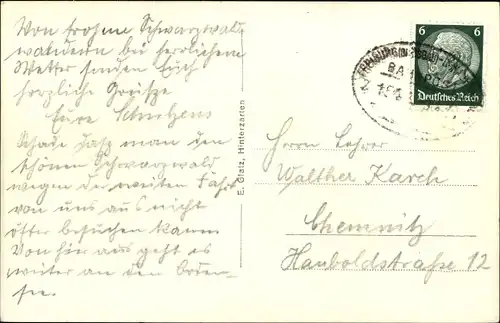 Von frohem Schwarzwald
wandern bei herrlichem
Wetter senden Euch
herzliche Grüsse
Eure Schulzens
Schade daß man den
schönen Schwarzwald
wegen der weiten Fahrt
von uns aus nicht
öfter besuchen kann
Von hier aus geht es
weiter an den Boden-
see.
E. Glatz, Hinterzarten
6 6
Deutsches Reich
Herrn Lehrer
Walther Karch
Chemnitz
Humboldtstraße 12